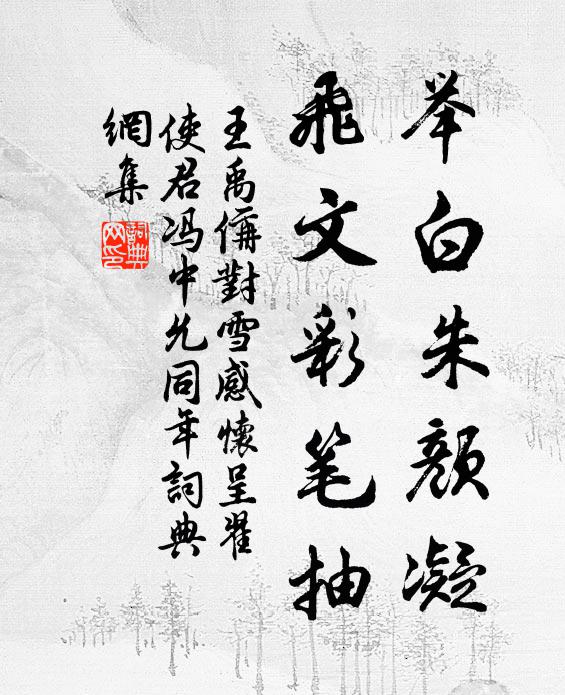 举白朱颜凝
飛文彩笔抽
王禹偁對雪感懷呈翟
使君冯中允同年詞典
網集
詞典
网印